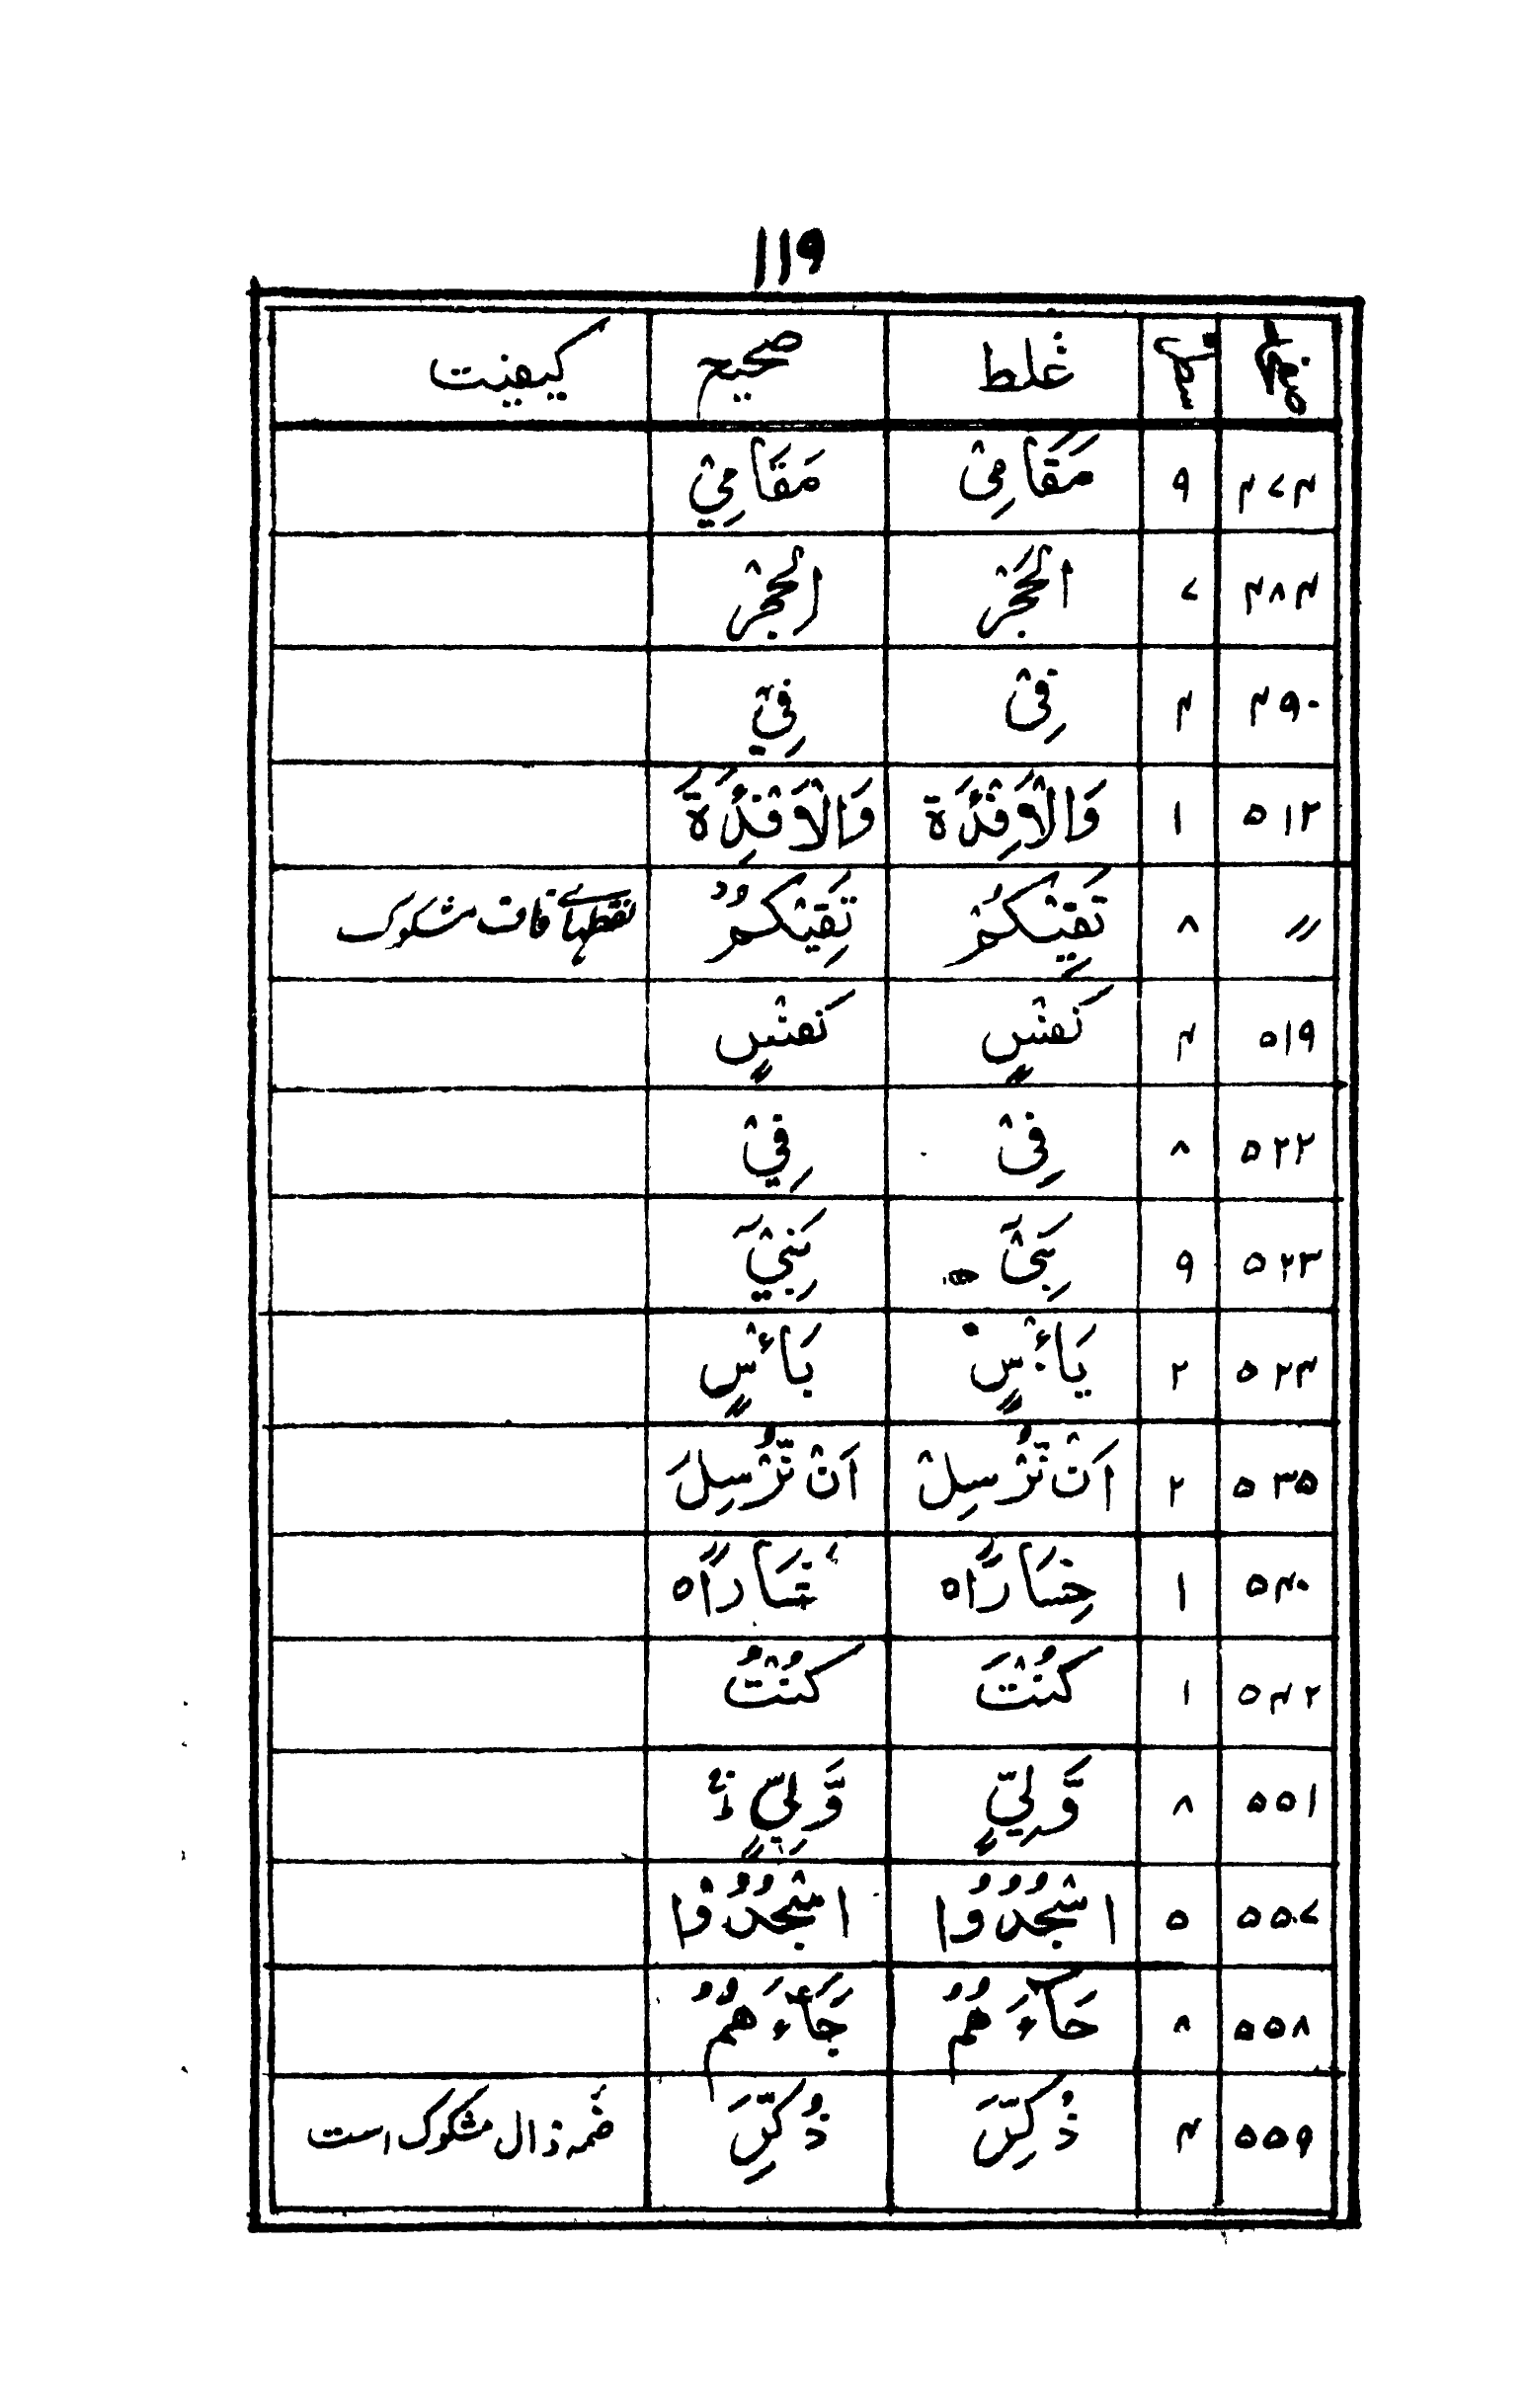 ۱۱۹
صفحہ سطر غلط صحیح کیفیت
۴۷۴ ۹ مَقَامِیْ مَقَامِيْ
۴۸۴ ۷ الحَجْرِ الحِجْرِ
۴۹۰ ۴ فِیْ فِيْۤ
۵۱۲ ۱ وَالْاَفِْٕدَةَ وَالْاَفْـِٕدَةَ
〃 ۸ تَقِيْكُمْ تَقِيْكُمُ نقطہائے قاف مشکوک
۵۱۹ ۴ نَفْسٍ نَفْسٍ
۵۲۲ ۸ فِیْ فِيْ
۵۲۳ ۹ بَنِیْۤ بَنِيْۤ
۵۲۴ ۲ يَاْسٍ بَاْسٍ
۵۳۵ ۲ اَنْ نُّرْسِلْ اَنْ نُّرْسِلَ
۵۴۰ ۱ خِسَارًاہ خَسَارًاہ
۵۴۲ ۱ كُنْتَ كُنْتُ
۵۵۱ ۸ وَّلِيٍّ وَّلِيٍّ
۵۵۷ ۵ اسْجُدُوُا اسْجُدُوْا
۵۵۸ ۸ حَآءَهُمُ جَآءَهُمُ
۵۵۹ ۴ ذُكِّرَ ذُكِّرِ ضمہ ذال مشکوک است